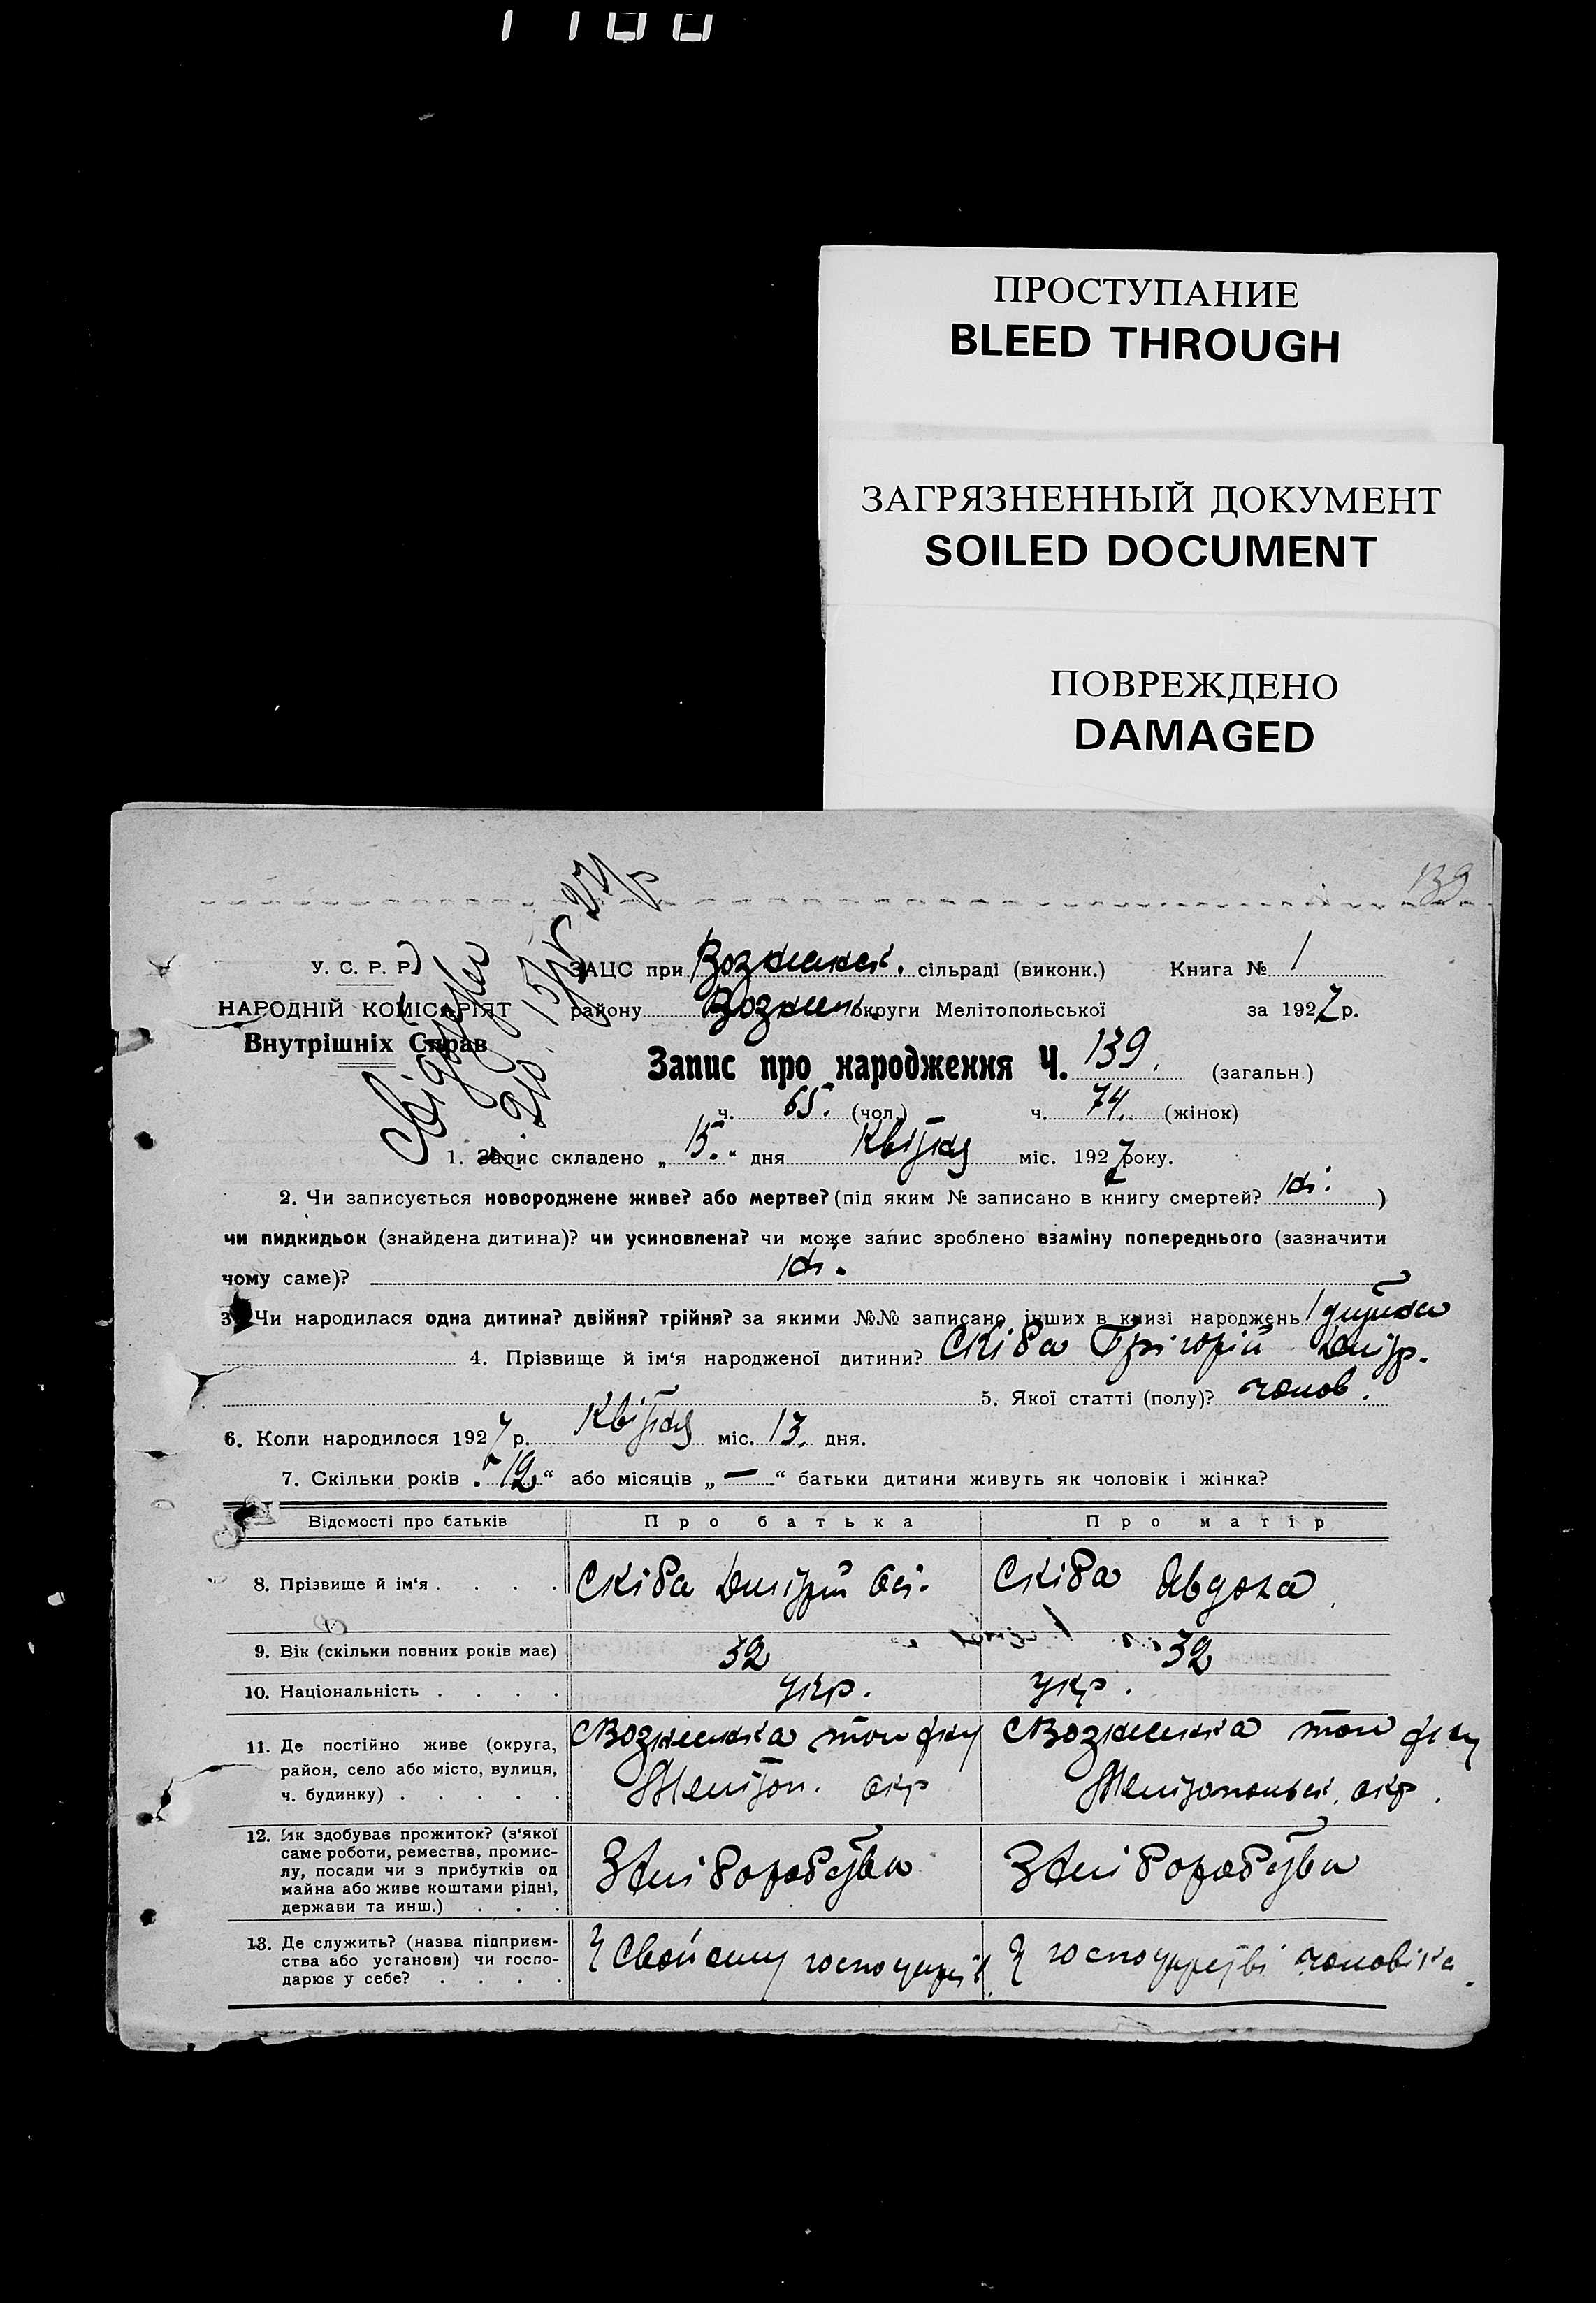 ПРОСТУПАНИЕ
BLEED THROUGH
ЗАГРЯЗНЕННЫЙ ДОКУМЕНТ
SOILED DOCUMENT
ПОВРЕЖДЕНО
DAMAGED
139
У. С. Р. Р.
НАРОДНІЙ КОМІСАРІЯТ
Внутрішніх Справ
ЗАЦС при Вознесенськ. сільраді (виконк.) Книга № 1
району округи Мелітопольської за 1927 р.
Запис про народження Ч. 139. (загальн.)
ч. 65. (чол.) ч. 74. (жінок)
1. Запис складено „ 15. “ дня Квітня міс. 1927 року.
2. Чи записується новороджене живе? або мертве? (під яким № записано в книгу смертей? )
чи пидкидьок (знайдена дитина)? чи усиновлена? чи може запис зроблено взаміну попереднього (зазначити
чому саме)?
3. Чи народилася одна дитина? двійня? трійня? за якими №№ записано інших в книзі народжень 1 дитина
4. Прізвище й ім‘я народженої дитини? Скіба Григорій Дмітр.
5. Якої статті (полу)? чолов.
6. Коли народилося 1927 р. Квітня міс. 13. дня.
7. Скільки років „ 12 “ або місяців „ — “ батьки дитини живуть як чоловік і жінка?
Відомості про батьків Про батька Про матір
8. Прізвище й ім‘я . . . . Скіба Дмітрій Скіба Явдоха
9. Вік (скільки повних років має) 32 32
10. Національність . . . . укр. укр.
11. Де постійно живе (округа,
район, село або місто, вулиця,
ч. будинку) . . . . .
Мелітоп. окр Мелітопольськ. окр.
12. Як здобуває прожиток? (з‘якої
саме роботи, ремества, промис-
лу, посади чи з прибутків од
майна або живе коштами рідні,
держави та инш.) . . .
Хліборобство Хліборобство
13. Де служить? (назва підприєм-
ства або установи) чи госпо-
дарює у себе? . . . .
У Своїому господарст. У господарстві чоловіка.